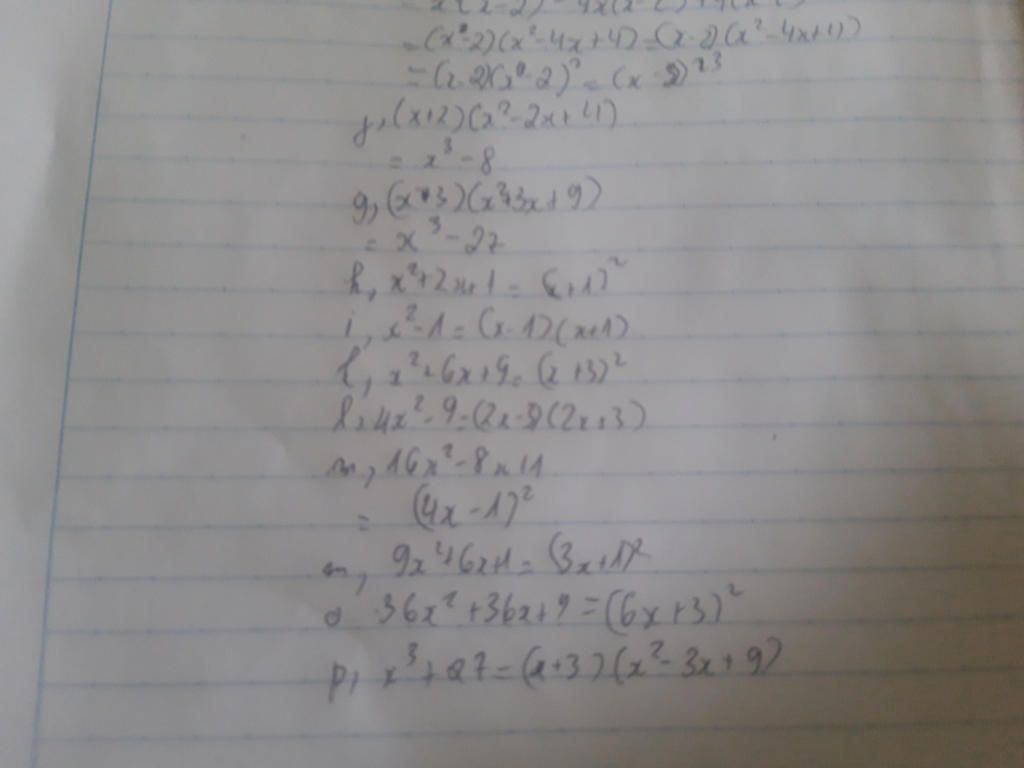 = x²(x-2) - 4x(x-2) + 4(x-2)
= (x-2)(x²-4x+4) = (x-2)(x²-4x+4)
= (x-2)(x-2)² = (x-2)³
f, (x+2)(x²-2x+4)
= x³-8
g, (x-3)(x²+3x+9)
= x³-27
h, x²+2x+1 = (x+1)²
i, x²-1 = (x-1)(x+1)
k, x²+6x+9 = (x+3)²
l, 4x²-9 = (2x-3)(2x+3)
m, 16x²-8x+1
= (4x-1)²
n, 9x²+6x+1 = (3x+1)²
o 36x²+36x+9 = (6x+3)²
p, x³+27 = (x+3)(x²-3x+9)